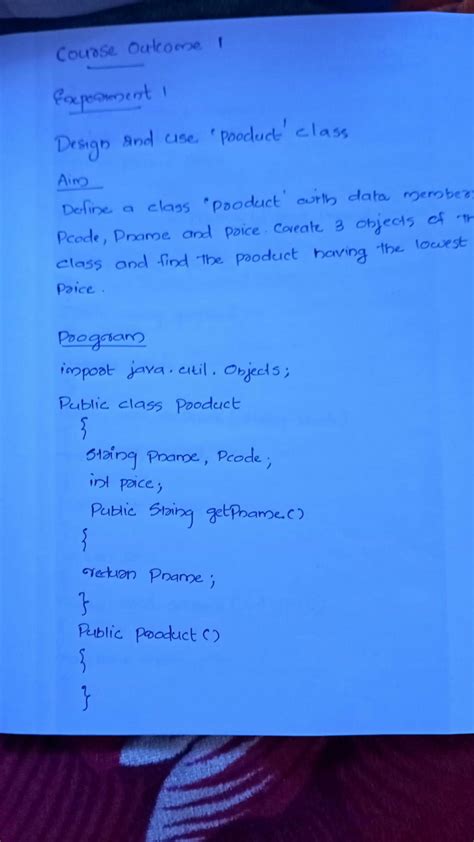 Course Outcome 1
Experiment 1
Design and use 'product' class
Aim
Define a class 'product' with data members
Pcode, Pname and price. Create 3 objects of the
class and find the product having the lowest
Price.
Program
import java.util.Objects;
Public class Product
{
String Pname, Pcode;
int price;
Public String getPname()
{
return Pname;
}
Public product()
{
}